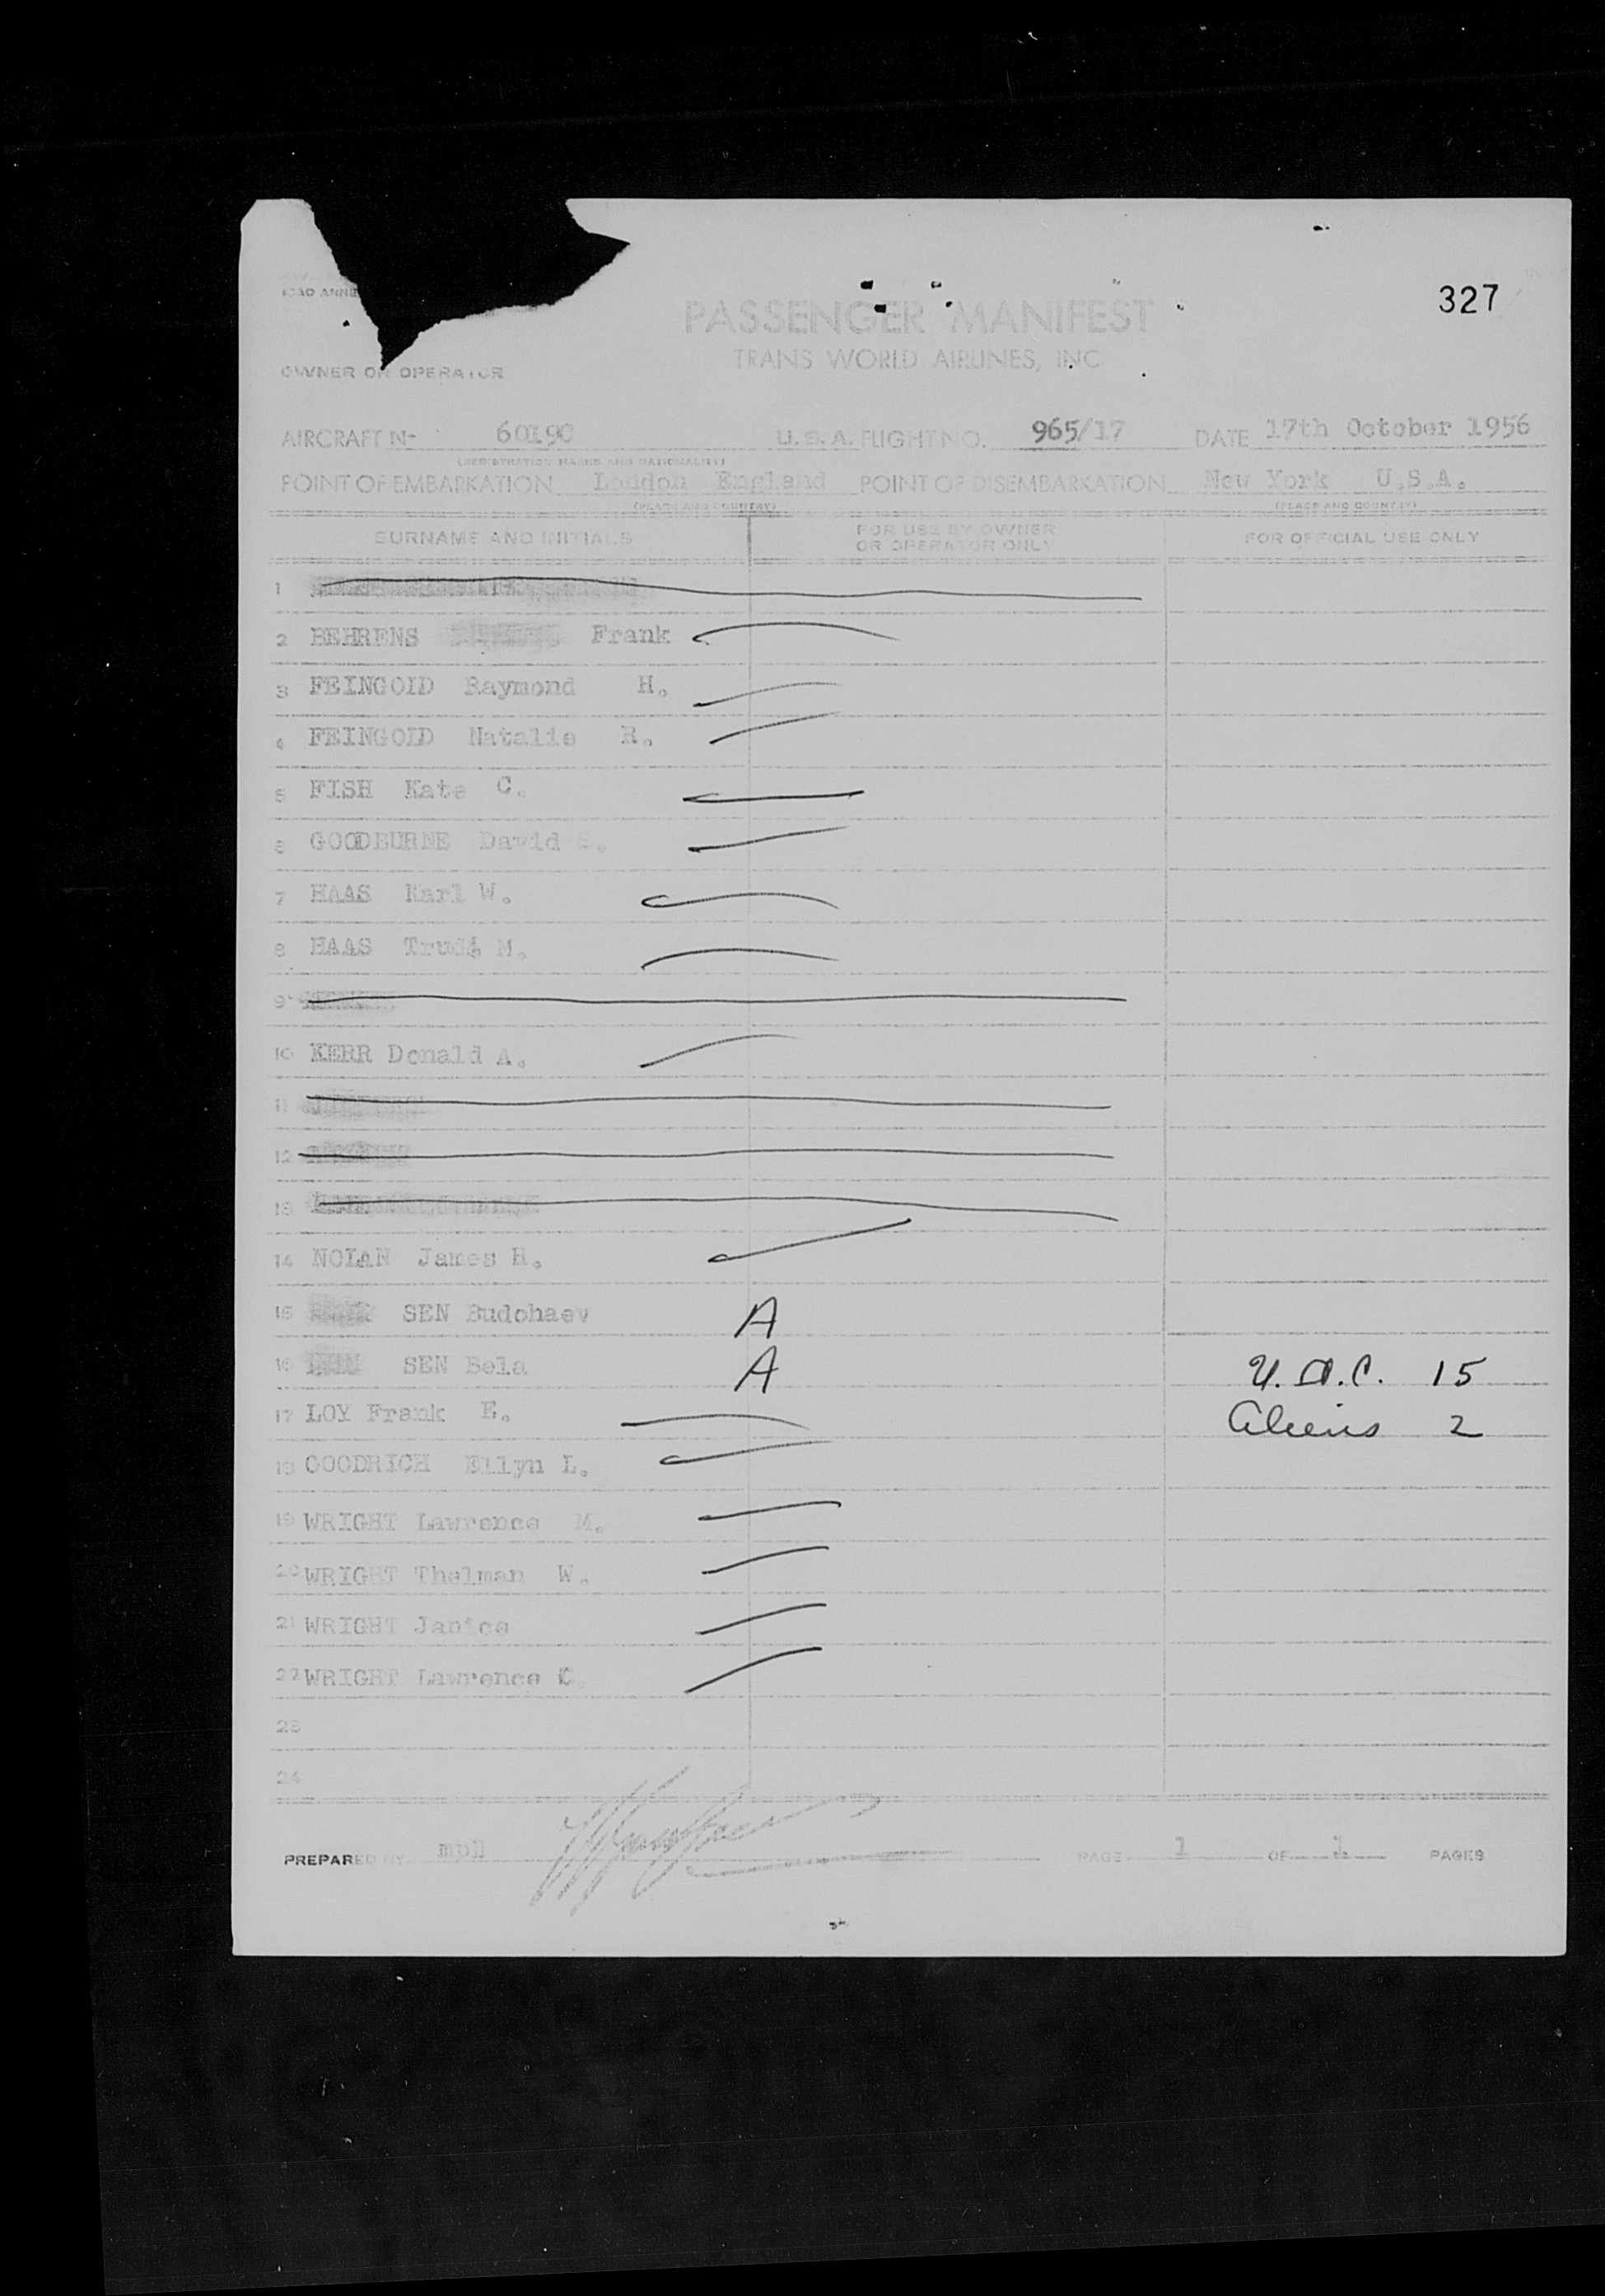 327
ICAO ANNE
PASSENGER MANIFEST
TRANS WORLD AIRLINES, INC
OWNER OR OPERATOR
AIRCRAFT N- 60190 U.S.A. FLIGHT NO. 965/17 DATE 17th October 1956
(REGISTRATION MARKS AND NATIONALITY)
POINT OF EMBARKATION London England POINT OF DISEMBARKATION New York U.S.A.
(PLACE AND COUNTRY) (PLACE AND COUNTRY)
SURNAME AND INITIALS FOR USE BY OWNER OR OPERATOR ONLY FOR OFFICIAL USE ONLY
1
2 BEHRENS Frank
3 FEINGOLD Raymond H.
4 FEINGOLD Natalie R.
5 FISH Kate C.
6 GOODBURNE David
7 HAAS Karl W.
8 HAAS Trudi M.
9
10 KERR Donald A.
11
12
13
14 NOLAN James H.
15 SEN Budohaev A
16 SEN Bela A U.S.C. 15
17 LOY Frank E. Aliens 2
18 GOODRICH Ellyn L.
19 WRIGHT Lawrence M.
20 WRIGHT Thelman W.
21 WRIGHT Janice
22 WRIGHT Lawrence C
23
24
PREPARED BY PAGE 1 OF 1 PAGES